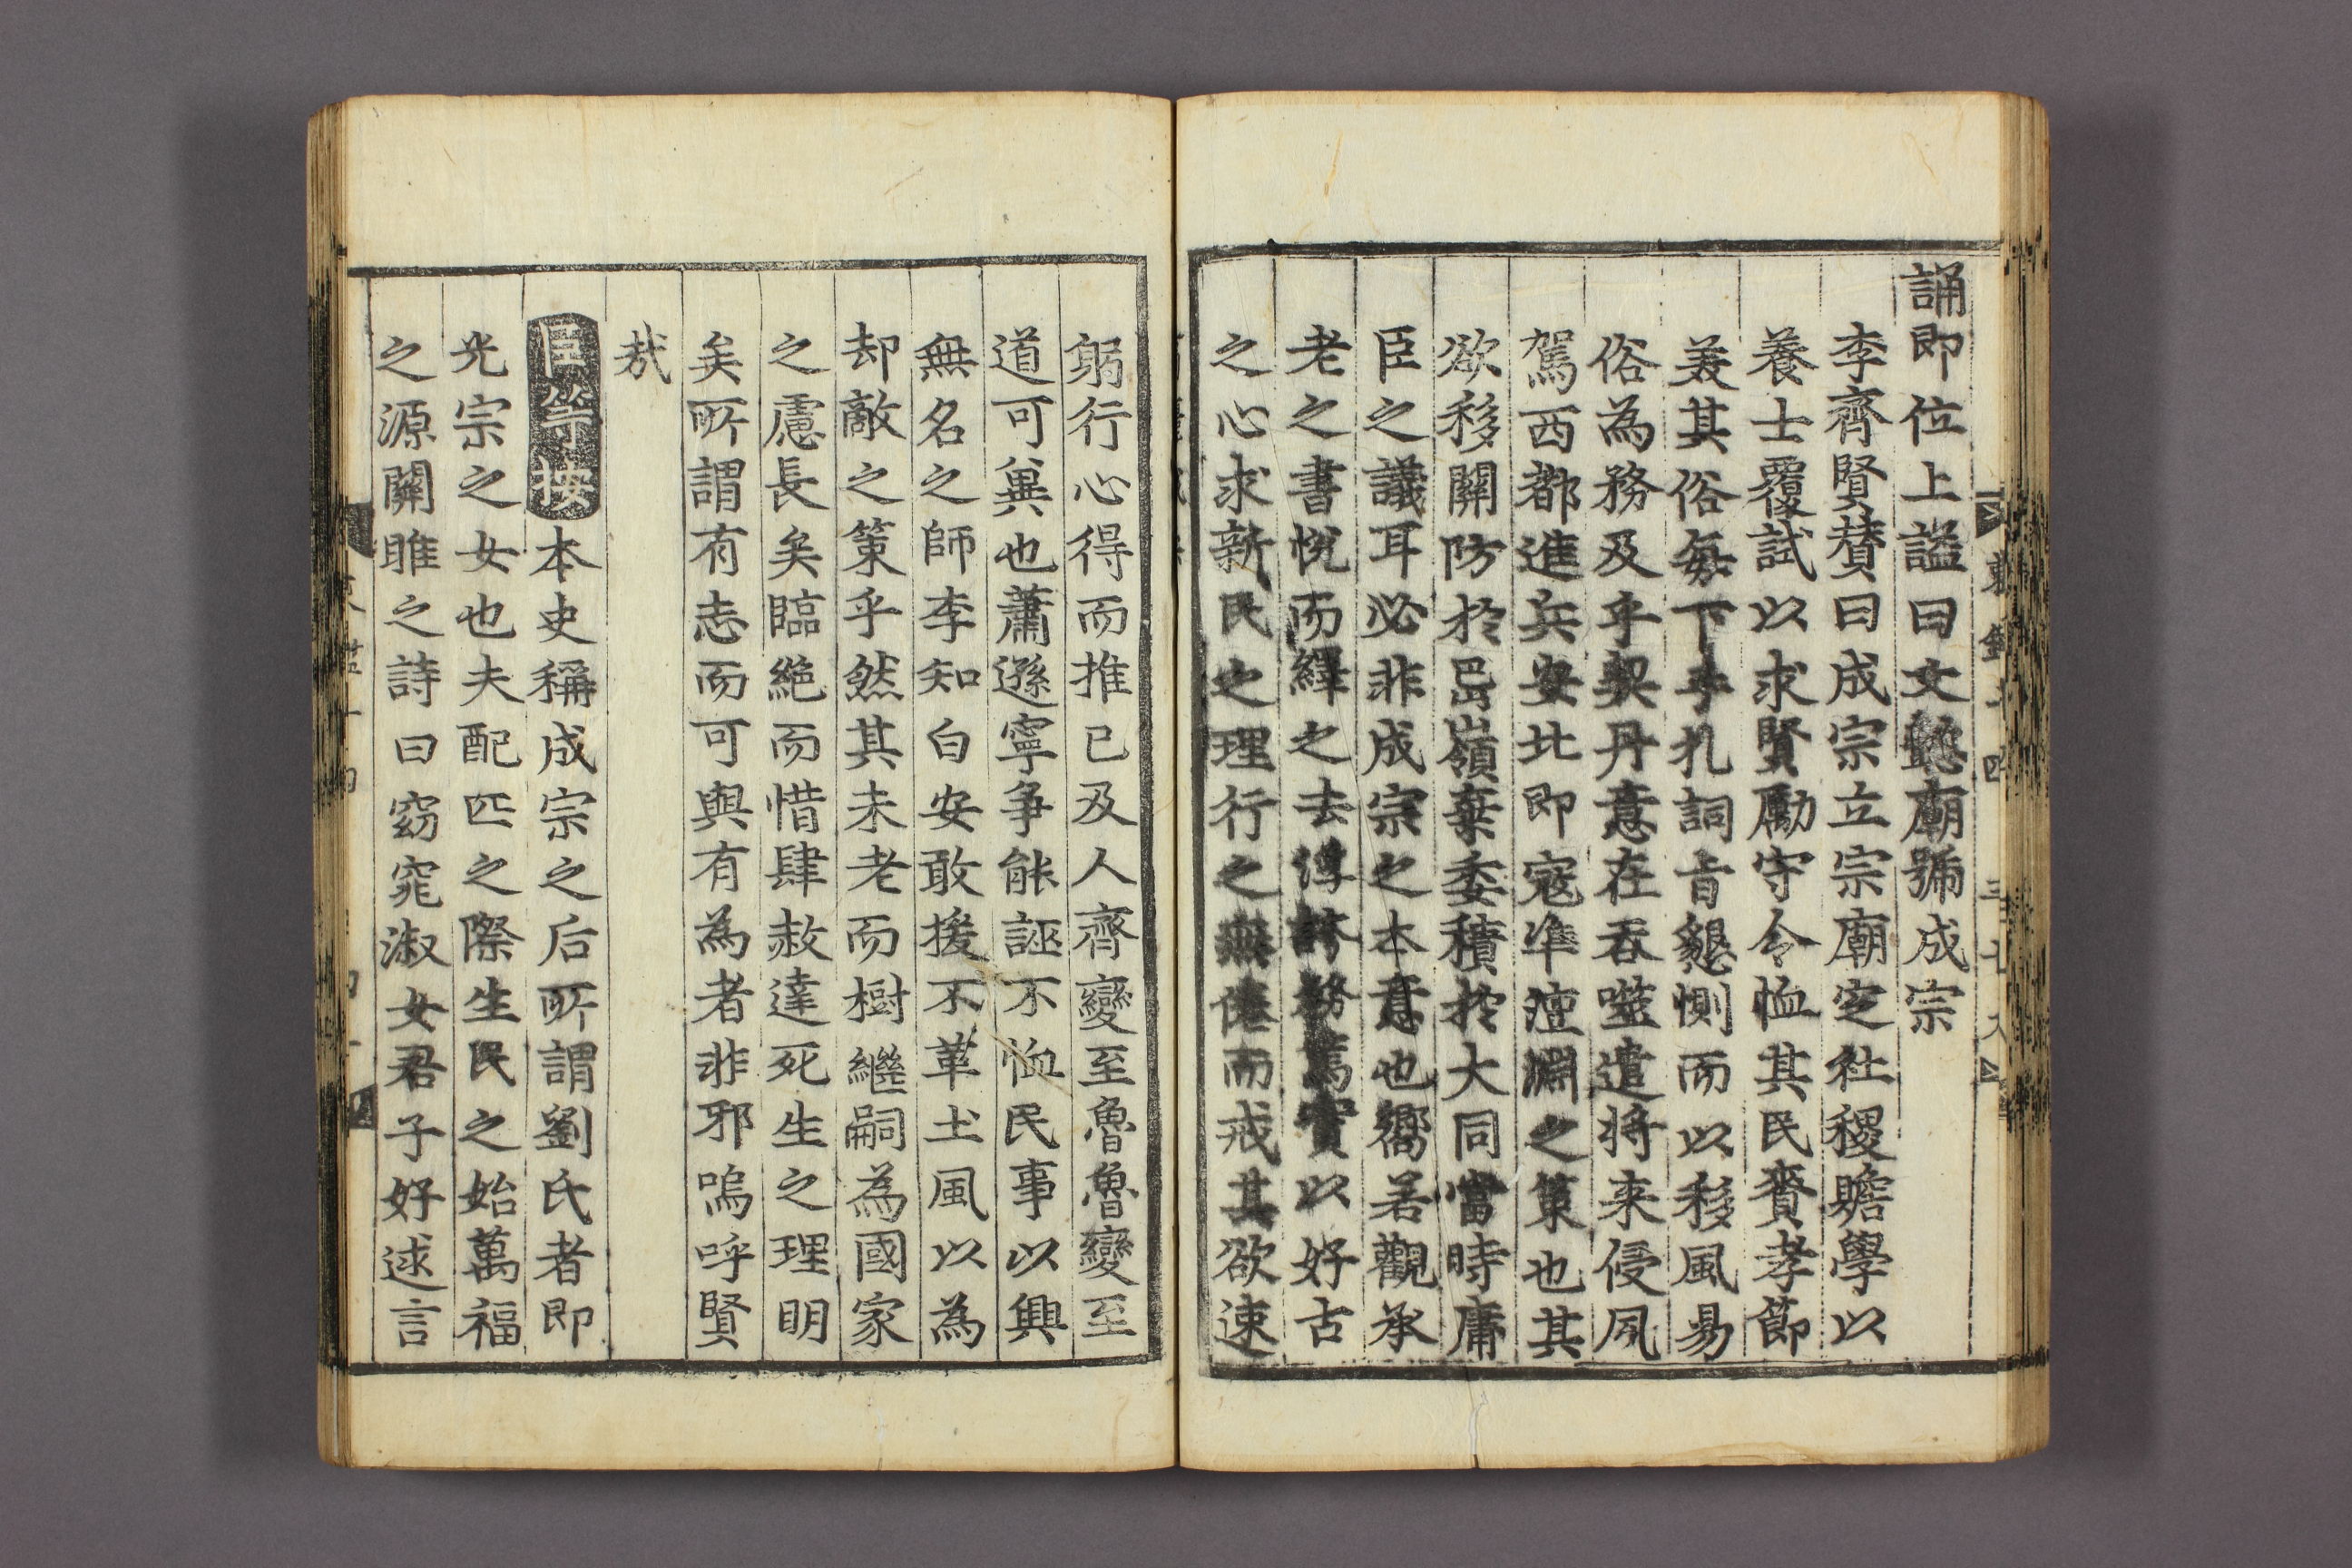 誦即位上謚曰文懿廟號成宗
李齊賢賛曰成宗立宗廟定社稷贍學以
養士覆試以求賢勵守令恤其民賚孝節
美其俗每下手札詞旨懇惻而以移風易
俗為務及乎契丹意在吞噬遣将来侵夙
駕西都進兵安北即寇準澶淵之策也其
欲移關防於岊嶺棄委積扵大同當時庸
臣之議耳必非成宗之本意也嚮若觀承
老之書悅而繹之去浮誇務篤實以好古
之心求新民之理行之無倦而戒其欲速
躬行心得而推已及人齊變至魯魯變至
道可兾也蕭遜寧争能誣不恤民事以興
無名之師李知白安敢援不革土風以為
却敵之策乎然其未老而樹繼嗣為國家
之慮長矣臨絶而惜肆赦達死生之理明
矣所謂有志而可與有為者非邪嗚呼賢
㢤
臣等按本史稱成宗之后所謂劉氏者即
光宗之女也夫配匹之際生民之始萬福
之源關雎之詩曰窈窕淑女君子好逑言